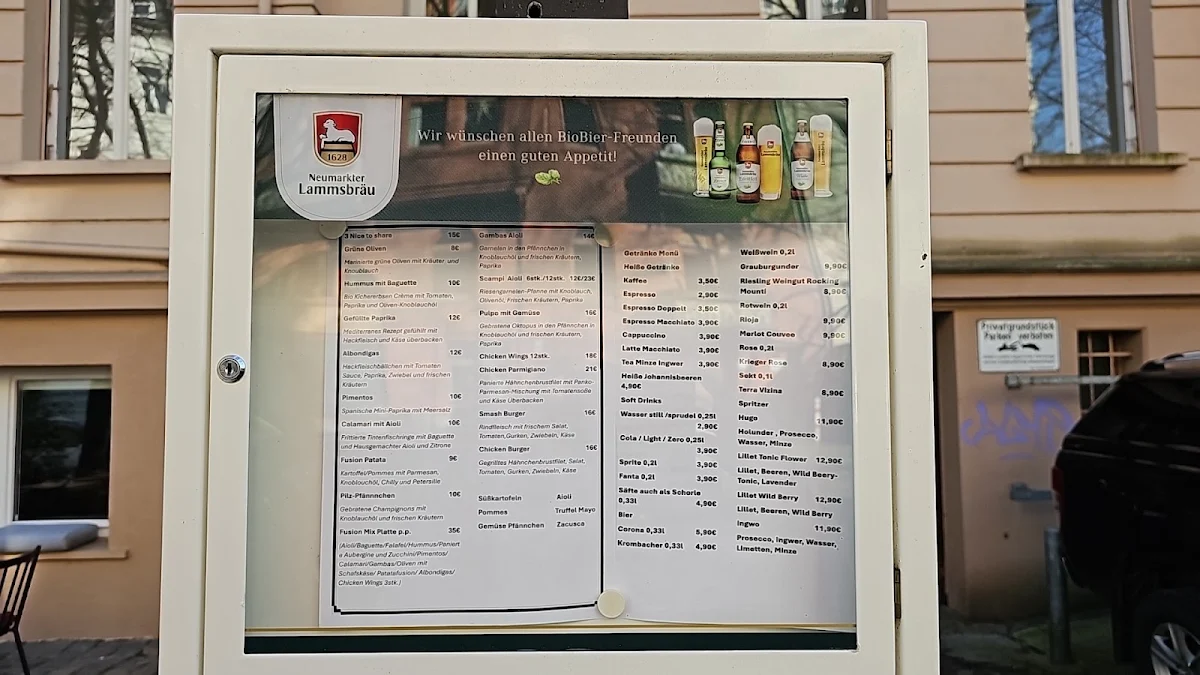 1628
Neumarkter
Lammsbräu
Wir wünschen allen BioBier-Freunden
einen guten Appetit!
3 Nice to share 15€
Grüne Oliven 8€
Marinierte grüne Oliven mit Kräuter, und
Knoublauch
Hummus mit Baguette 10€
Bio Kichererbsen Crème mit Tomaten,
Paprika und Oliven-Knoblauchöl
Gefüllte Paprika 12€
Mediterranes Rezept gefühlt mit
Hackfleisch und Käse überbacken
Albondigas 12€
Hackfleischbällchen mit Tomaten
Sauce, Paprika, Zwiebel und frischen
Kräutern
Pimentos 10€
Spanische Mini-Paprika mit Meersalz
Calamari mit Aioli 10€
Frittierte Tintenfischringe mit Baguette
und Hausgemachter Aioli und Zitrone
Fusion Patata 9€
Kartoffel/Pommes mit Parmesan,
Knoblouchöl, Chilly und Petersilie
Pilz-Pfännchen 10€
Gebratene Champignons mit
Knoblauchöl und frischen Kräutern
Fusion Mix Platte p.p. 35€
(Aioli/Baguette/Falafel/Hummus/Paniert
e Aubergine und Zucchini/Pimentos/
Calamari/Gambas/Oliven mit
Schafskäse/ Patatafusion/ Albondigas/
Chicken Wings 3stk.)
Gambas Aioli 14€
Garnelen in den Pfännchen in
Knoblauchöl und frischen Kräutern,
Paprika
Scampi Aioli 6stk./12stk. 12€/23€
Riesengarnelen-Pfanne mit Knoblauch,
Olivenöl, Frischen Kräutern, Paprika
Pulpo mit Gemüse 16€
Gebratene Oktopus in den Pfännchen in
Knoblauchöl und frischen Kräutern,
Paprika
Chicken Wings 12stk. 18€
Chicken Parmigiano 21€
Panierte Hähnchenbrustfilet mit Panko-
Parmesan-Mischung mit Tomatensoße
und Käse Überbacken
Smash Burger 16€
Rindfleisch mit frischem Salat,
Tomaten,Gurken, Zwiebeln, Käse
Chicken Burger 16€
Gegrilltes Hähnchenbrustfilet, Salat,
Tomaten, Gurken, Zwiebeln, Käse
Süßkartofeln Aioli
Pommes Truffel Mayo
Gemüse Pfännchen Zacusca
Getränke Menü
Heiße Getränke
Kaffee 3,50€
Espresso 2,90€
Espresso Doppelt 3,50€
Espresso Macchiato 3,90€
Cappuccino 3,90€
Latte Macchiato 3,90€
Tea Minze Ingwer 3,90€
Heiße Johannisbeeren
4,90€
Soft Drinks
Wasser still /sprudel 0,25l
2,90€
Cola / Light / Zero 0,25l
3,90€
Sprite 0,2l 3,90€
Fanta 0,2l 3,90€
Säfte auch als Schorle
0,33l 4,90€
Bier
Corona 0,33l 5,90€
Krombacher 0,33l 4,90€
Weißwein 0,2l
Grauburgunder 9,90€
Riesling Weingut Rocking
Mounti 8,90€
Rotwein 0,2l
Rioja 9,90€
Merlot Couvee 9,90€
Rose 0,2l
Krieger Rose 8,90€
Sekt 0,1l
Terra Vizina 8,90€
Spritzer
Hugo 11,90€
Holunder , Prosecco,
Wasser, Minze
Lillet Tonic Flower 12,90€
Lillet, Beeren, Wild Beery-
Tonic, Lavender
Lillet Wild Berry 12,90€
Lillet, Beeren, Wild Berry
Ingwo 11,90€
Prosecco, Ingwer, Wasser,
Limetten, Minze
Privatgrundstück
Parken verboten